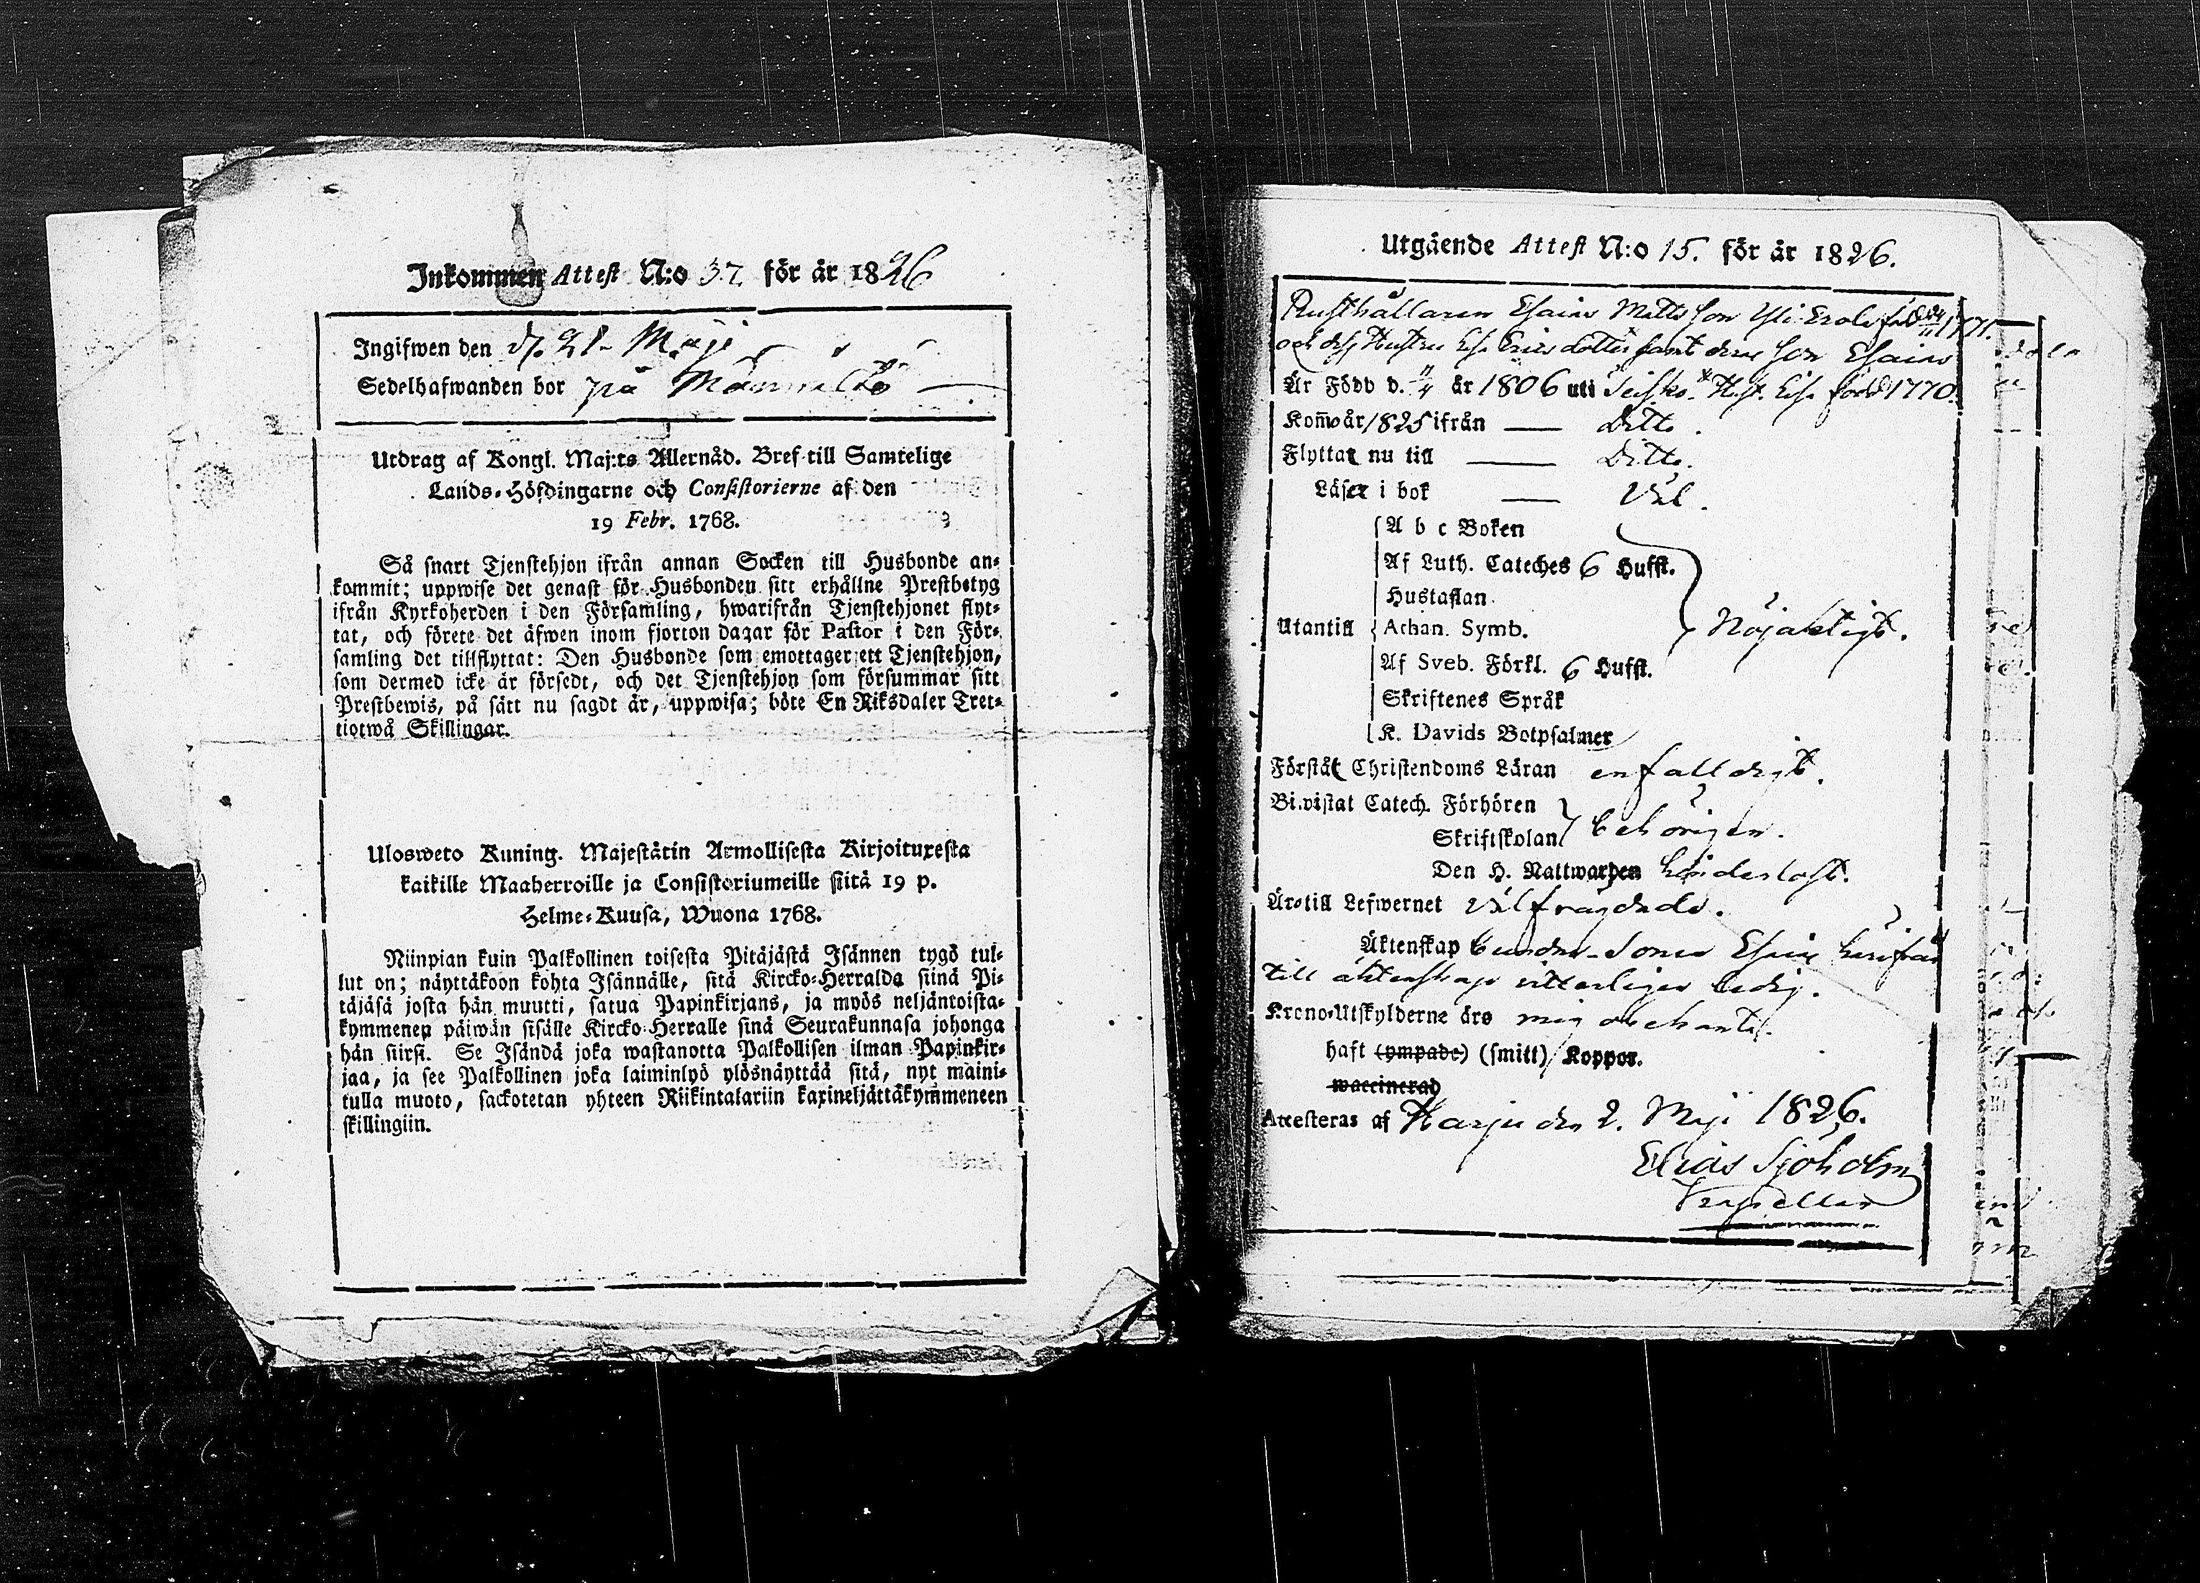 Inkommen Attest N:o 37 för år 1826
Ingifwen den d. 21 Maji
Sedelhafwanden bor på
Utdrag af Kongl. Maj:ts Allernåd. Bref till Samtelige
Lands-Höfdingarne och Consistorierne af den
19 Febr. 1768.
Så snart Tjenstehjon ifrån annan Socken till Husbonde an-
kommit; uppwise det genast för Husbonden sitt erhållne Prestbetyg
ifrån Kyrkoherden i den Församling, hwarifrån Tjenstehjonet flyt-
tat, och förete det äfwen inom fjorton dagar för Pastor i den För-
samling det tillflyttat: Den Husbonde som emottager ett Tjenstehjon,
som dermed icke är försedt, och det Tjenstehjon som försummar sitt
Prestbewis, på sätt nu sagdt är, uppwisa; böte En Riksdaler Tret-
tiotwå Skillingar.
Ulosweto Kuning. Majestätin Armollisesta Kirjoituxesta
kaikille Maaherroille ja Consistoriumeille siitä 19 p.
Helme-Kuusa, Wuona 1768.
Niinpian kuin Palkollinen toisesta Pitäjästä Isännen tygö tul-
lut on; näyttäkoon kohta Isännälle, sitä Kircko-Herralda siinä Pi-
täjäsä josta hän muutti, satua Papinkirjans, ja myös neljäntoista-
kymmenen päiwän sisälle Kircko-Herralle sinä Seurakunnasa johonga
hän siirsi. Se Isändä joka wastanotta Palkollisen ilman Papinkir-
jaa, ja see Palkollinen joka laiminlyö ylösnäyttää sitä, nyt maini-
tulla muoto, sackotetan yhteen Riikintalariin kaxineljättäkymmeneen
skillingiin.
Utgående Attest N:o 15. för år 1826.
Rusthållaren Esaias Matts son Yli-Erola född 1771.
och dess Hustru Lisa Ericsdotter samt deras son Esaias
Är Född d. 11/4 år 1806 uti Seisko Hust. Lisa född 1770.
Kom̃o år 1825 ifrån — Ditto.
Flyttar nu till — Ditto.
Läser i bok — Väl.
A b c Boken
Af Luth. Cateches 6 Hufst.
Hustaflan.
Utantill Athan. Symb. Nöjaktigt.
Af Sveb. Förkl. 6 Hufst.
Skriftenes Språk
K. Davids Botpsalmer
Förstår Christendoms Läran enfalldigt.
Biwistat Catech. Förhören
Skriftskolan behörigen.
Den H. Nattwarden hinderlöst.
Äro till Lefwernet välfrägdade.
Äktenskap bundne. Sonen Esaias härifrån
till äktenskap vitterligen ledig.
Krono-Utskylderne äro mig obekante.
haft (ympade) (smitt) Koppor.
waccinerad
Attesteras af Harju den 2. Maji 1826.
Elias Sjöholm
Capellan